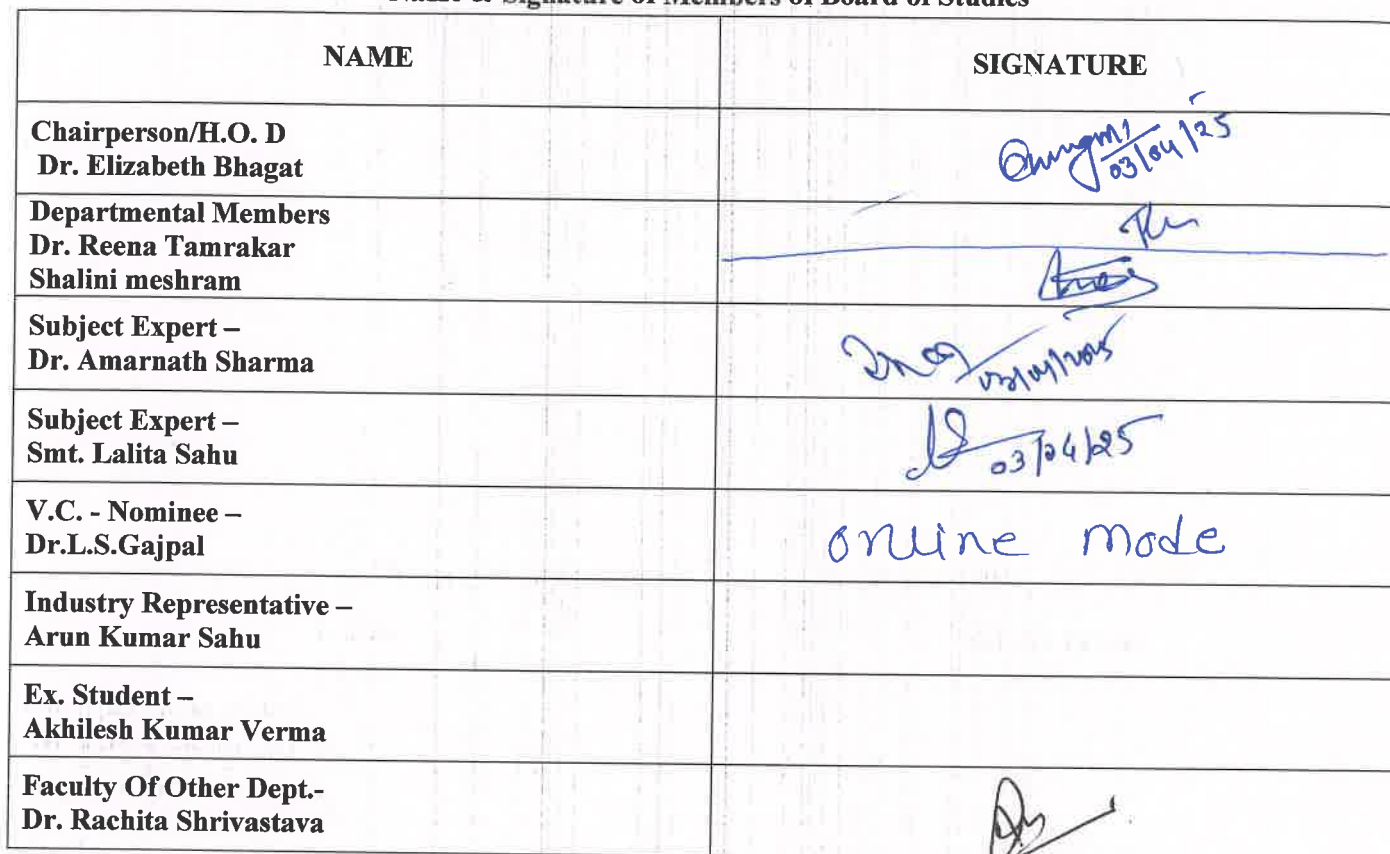 Name & Signature of Members of Board of Studies
NAME
SIGNATURE
Chairperson/H.O. D
Dr. Elizabeth Bhagat
03/04/25
Departmental Members
Dr. Reena Tamrakar
Shalini meshram
Subject Expert –
Dr. Amarnath Sharma
03/04/2025
Subject Expert –
Smt. Lalita Sahu
03/04/25
V.C. - Nominee –
Dr.L.S.Gajpal
online mode
Industry Representative –
Arun Kumar Sahu
Ex. Student –
Akhilesh Kumar Verma
Faculty Of Other Dept.-
Dr. Rachita Shrivastava